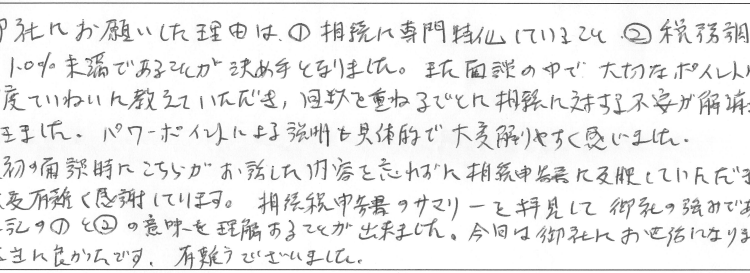 社にお願いした理由は、① 相続に専門特化していること ② 税務調
1.0%未満であることが決め手となりました。また面談の中で 大切なポイント
度ていねいに教えていただき、回数を重ねるごとに相続に対する不安が解消
ました。パワーポイントによる説明も具体的で大変解りやすく感じました。
初の面談時にこちらがお話した内容を忘れずに相続申告書に反映していただき
変有難く感謝しています。 相続税申告書のサマリーを拝見して 御社の強みであ
記の①と②の意味を理解することが出来ました。今回は御社にお世話になりま
当に良かったです。 有難うございました。